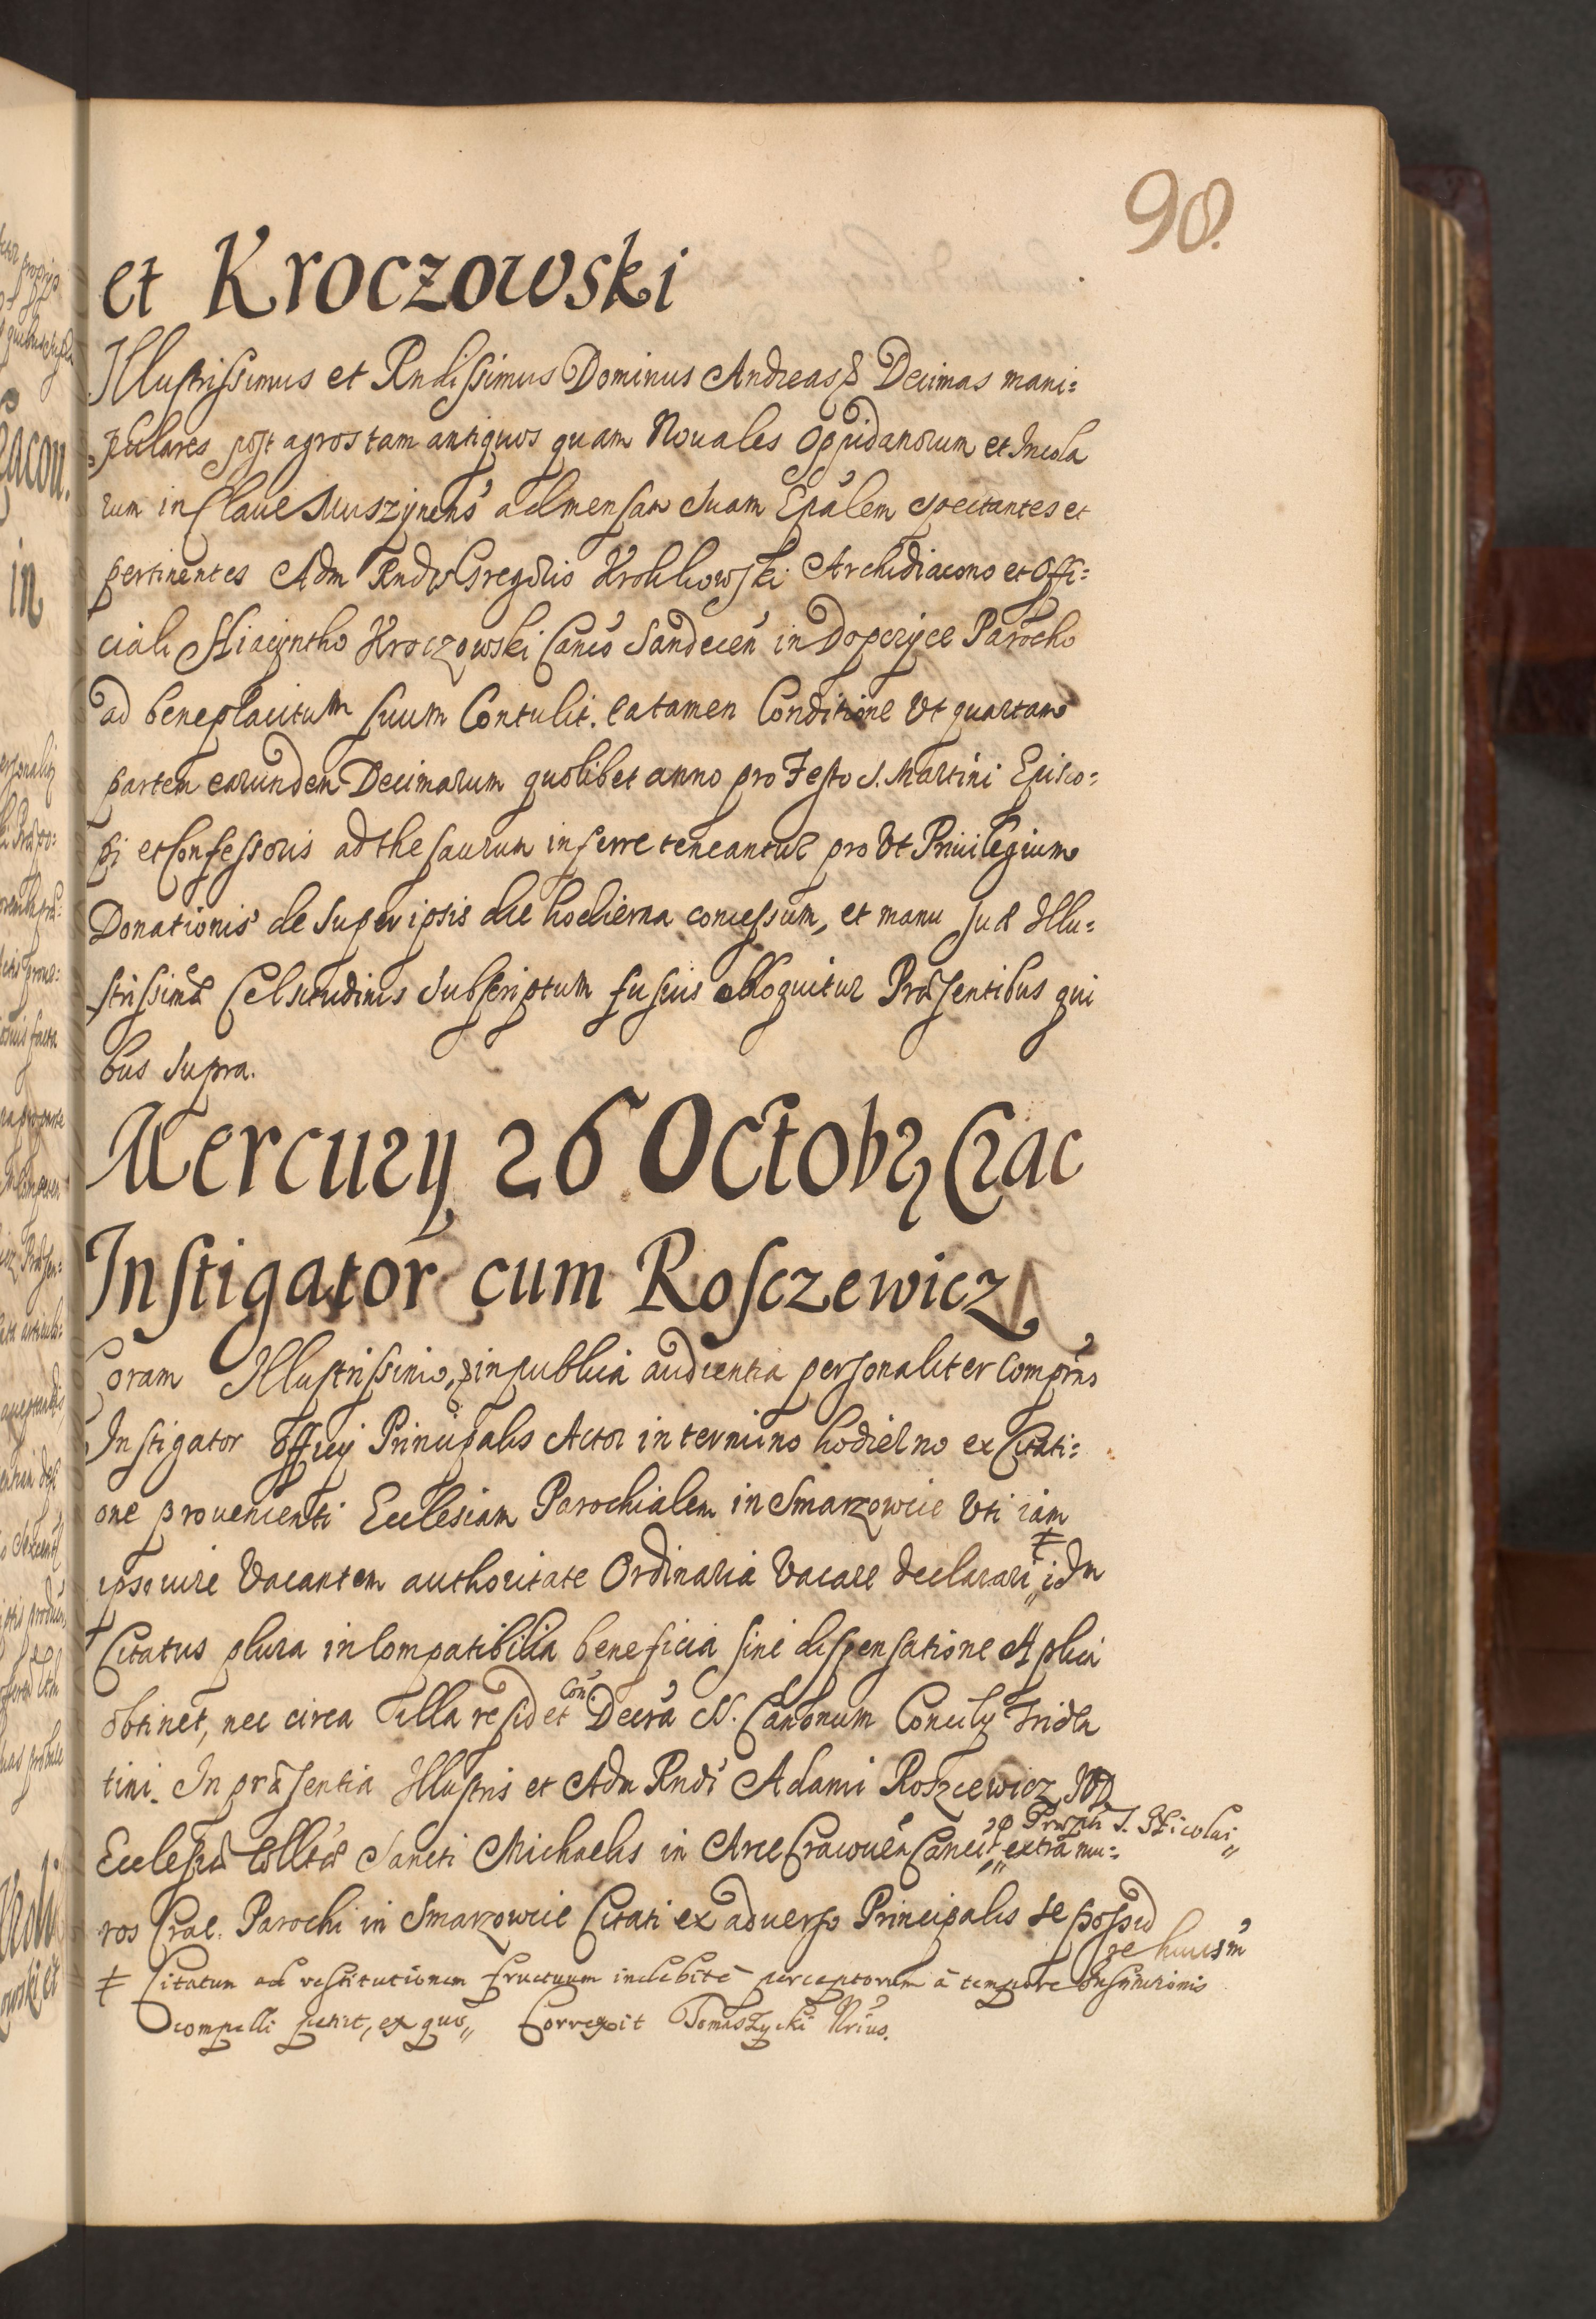 98.
et Kroczowski
Illustrissimus et Rndissimus Dominus Andreas & Decimas mani=
pulares post agros tam antiquos quam Nouales Oppidanorum et Incola
rum in Claue Muszynens' ad mensam Suam Epálem spectantes et
pertinentes Adm Rndo Gregorio Krohhowski Archidiacono et Offi=
ciali Hiacyntho Kroczowski Canco Sandecen' in Dopczyce Parocho
ad beneplacitum suum Contulit. ea tamen Conditione Vt quartam
partem earundem Decimarum quolibet anno pro Festo S. Martini Episco=
pi et Confessoris ad thesaurum inferre teneantur pro Vt Priuilegium
Donationis de super ipsis die hodierna concessum, et manu suæ Illu=
strissimæ Celsitudinis Subscriptum fusius obloquitur Præsentibus qui
bus Supra.
Mercury 26 Octobr Crac
Instigator cum Rosczewicz
Coram Illustrissimo, & in publica audientia personaliter Comprns
Instigator Officij Principalis Actor in termino hodierno ex Citati=
one prouenienti Ecclesiam Parochialem in Smarzowcie Vti iam
ipso iure Vacantem authoritate Ordinaria Vacare declarari ǂ idm
Citatus plura incompatibilia beneficia sine dispensatione Aplica
obtinet, nec circa illa resid et con Decrá SS. Canonum Concily Tride
tini. In præsentia Illustris et Adm Rndi Adami Roszcewicz JVD
Ecclesiæ Colltæ Sancti Michaelis in Arce Cracouen Canci, & Prwpti S. Nicolai
extra mu=
ros Crac. Parochi in Smarzowcie Citati ex aduerso Principalis se possid
re huiusm
ǂ Citatum ad restitutionem fructuum indebité perceptorum á tempore
compelli petit, ex quo Correxit Tomaszycki Nrius.